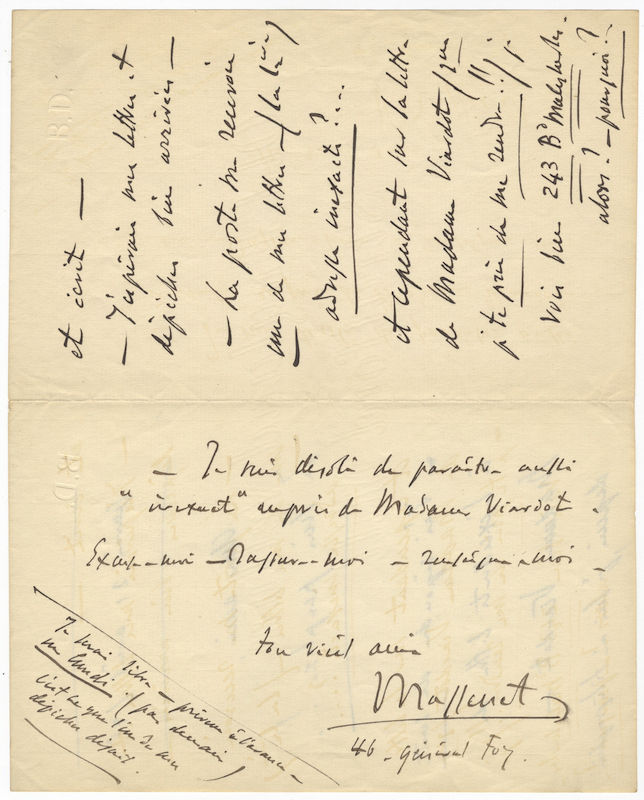 et écrit —
— J'espérais mes lettres et
dépêches bien arrivées —
— La poste me renvoie
une de mes lettres — (la 1ère)
adresse inexacte ? ....
et cependant sur la lettre
de Madame Viardot (que
je te prie de me rendre !!) je
vois bien 243 Bd Malesherbes.
alors ? — pourquoi ? —
— Je suis désolé de paraître aussi
"inexact" auprès de Madame Viardot.
Excuse-moi — Rassure-moi — renseigne-moi.
ton vieil ami
Massenet
46 - général Foy.
Je serai libre — prévenu à l'avance —
un Lundi (pas demain)
c'est ce que l'une de mes
dépêches disait.
B.D.
B.D.